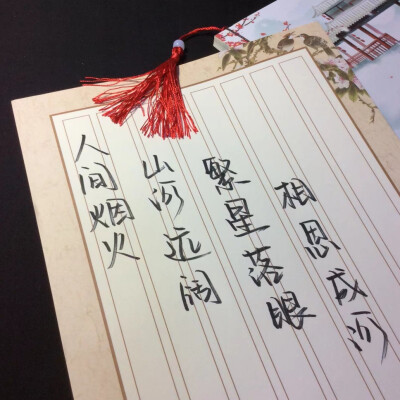 相思成河
繁星落眼
山河远阔
人间烟火